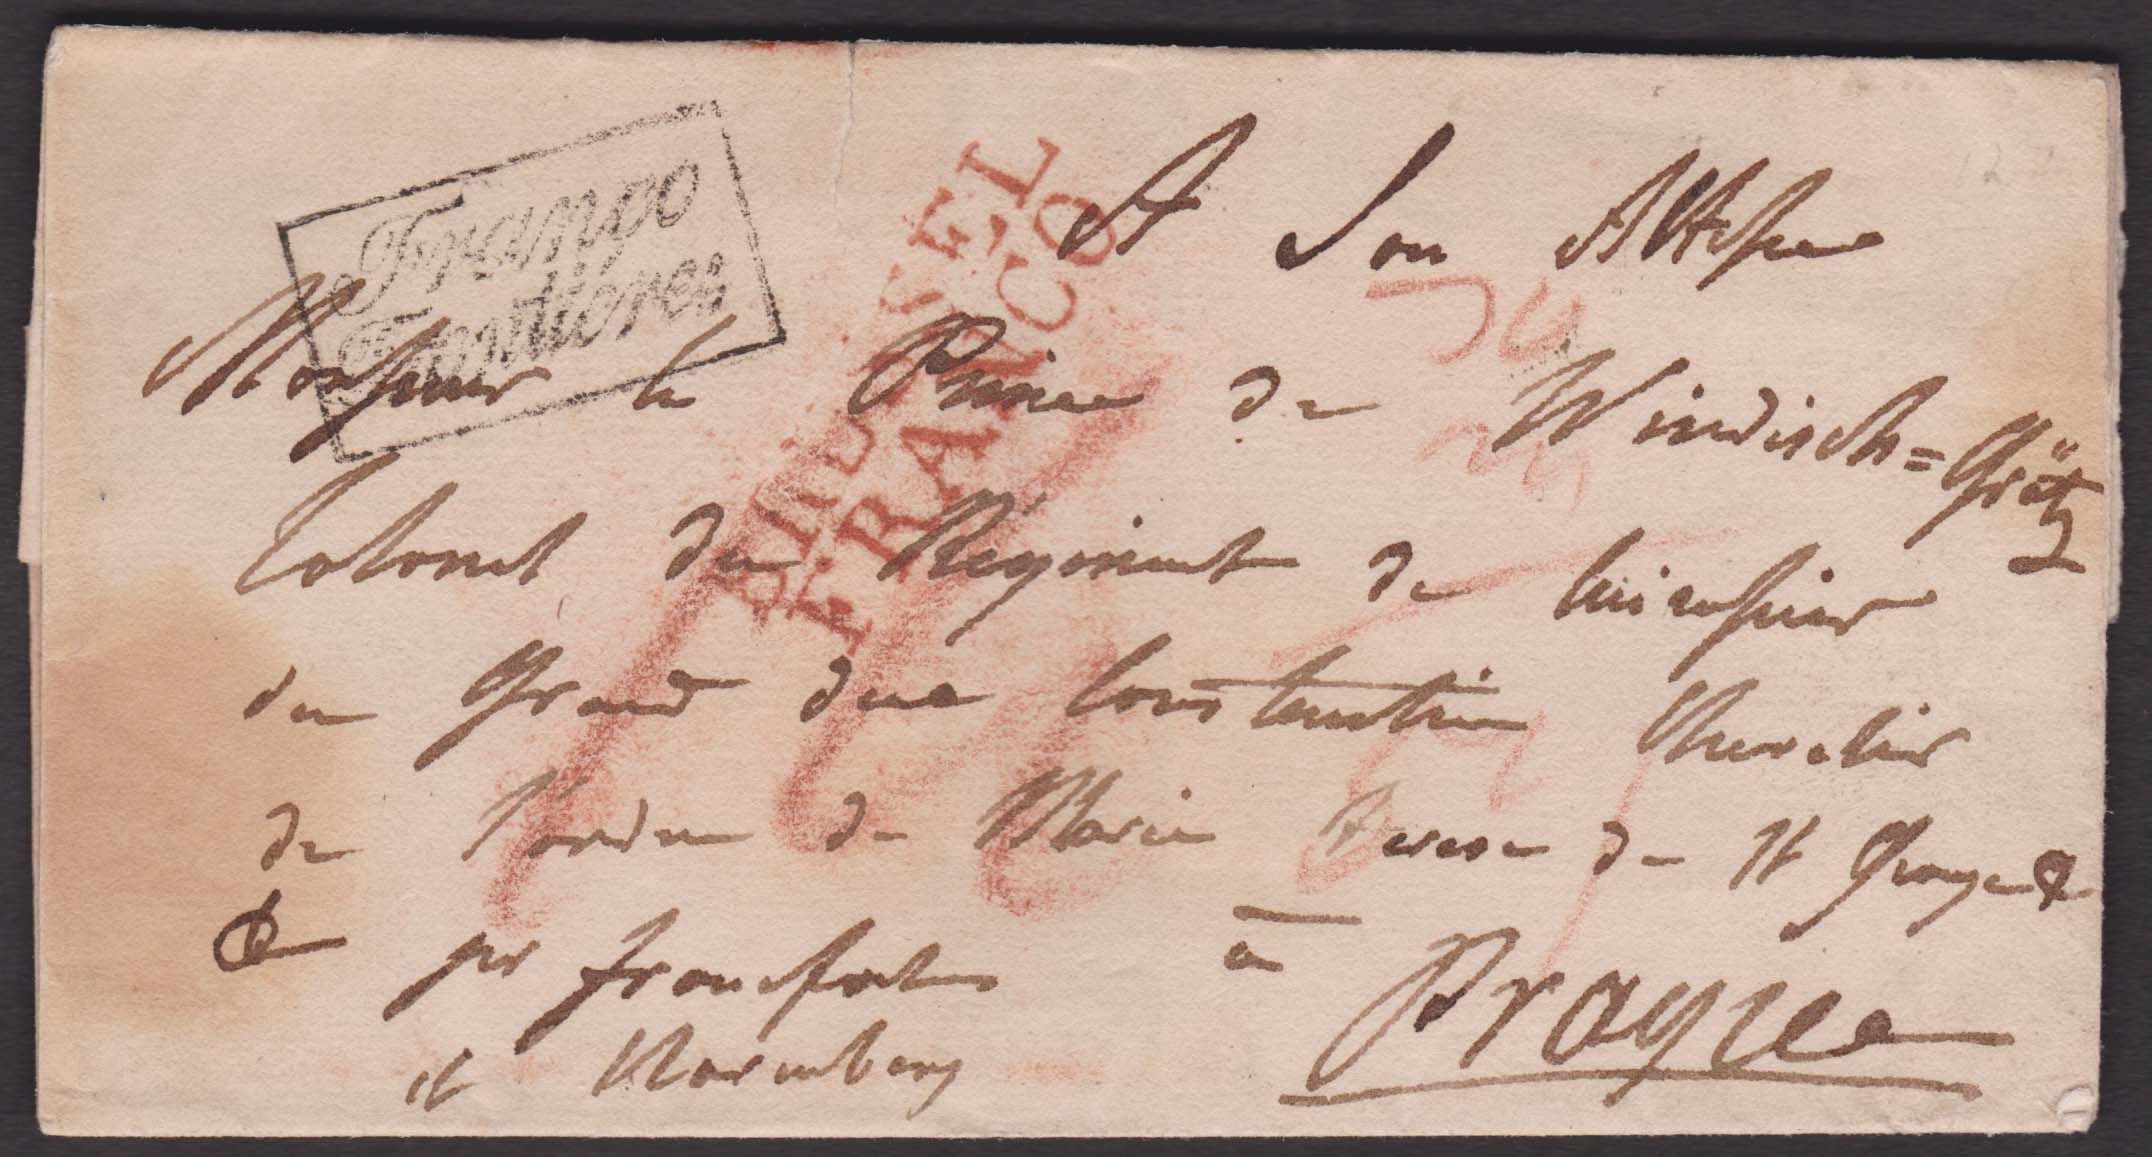 Franco
Frontieres
BRUSSEL
FRANCO
A Son Altesse
Monsieur le Prince de Windisch=Grätz
Colonel du Régiment de Cuirassier
du Grand duc Constantin Chevalier
de l'ordre de Marie Terese de St George &
&
pr francfort
et Nuremberg
à
Prague